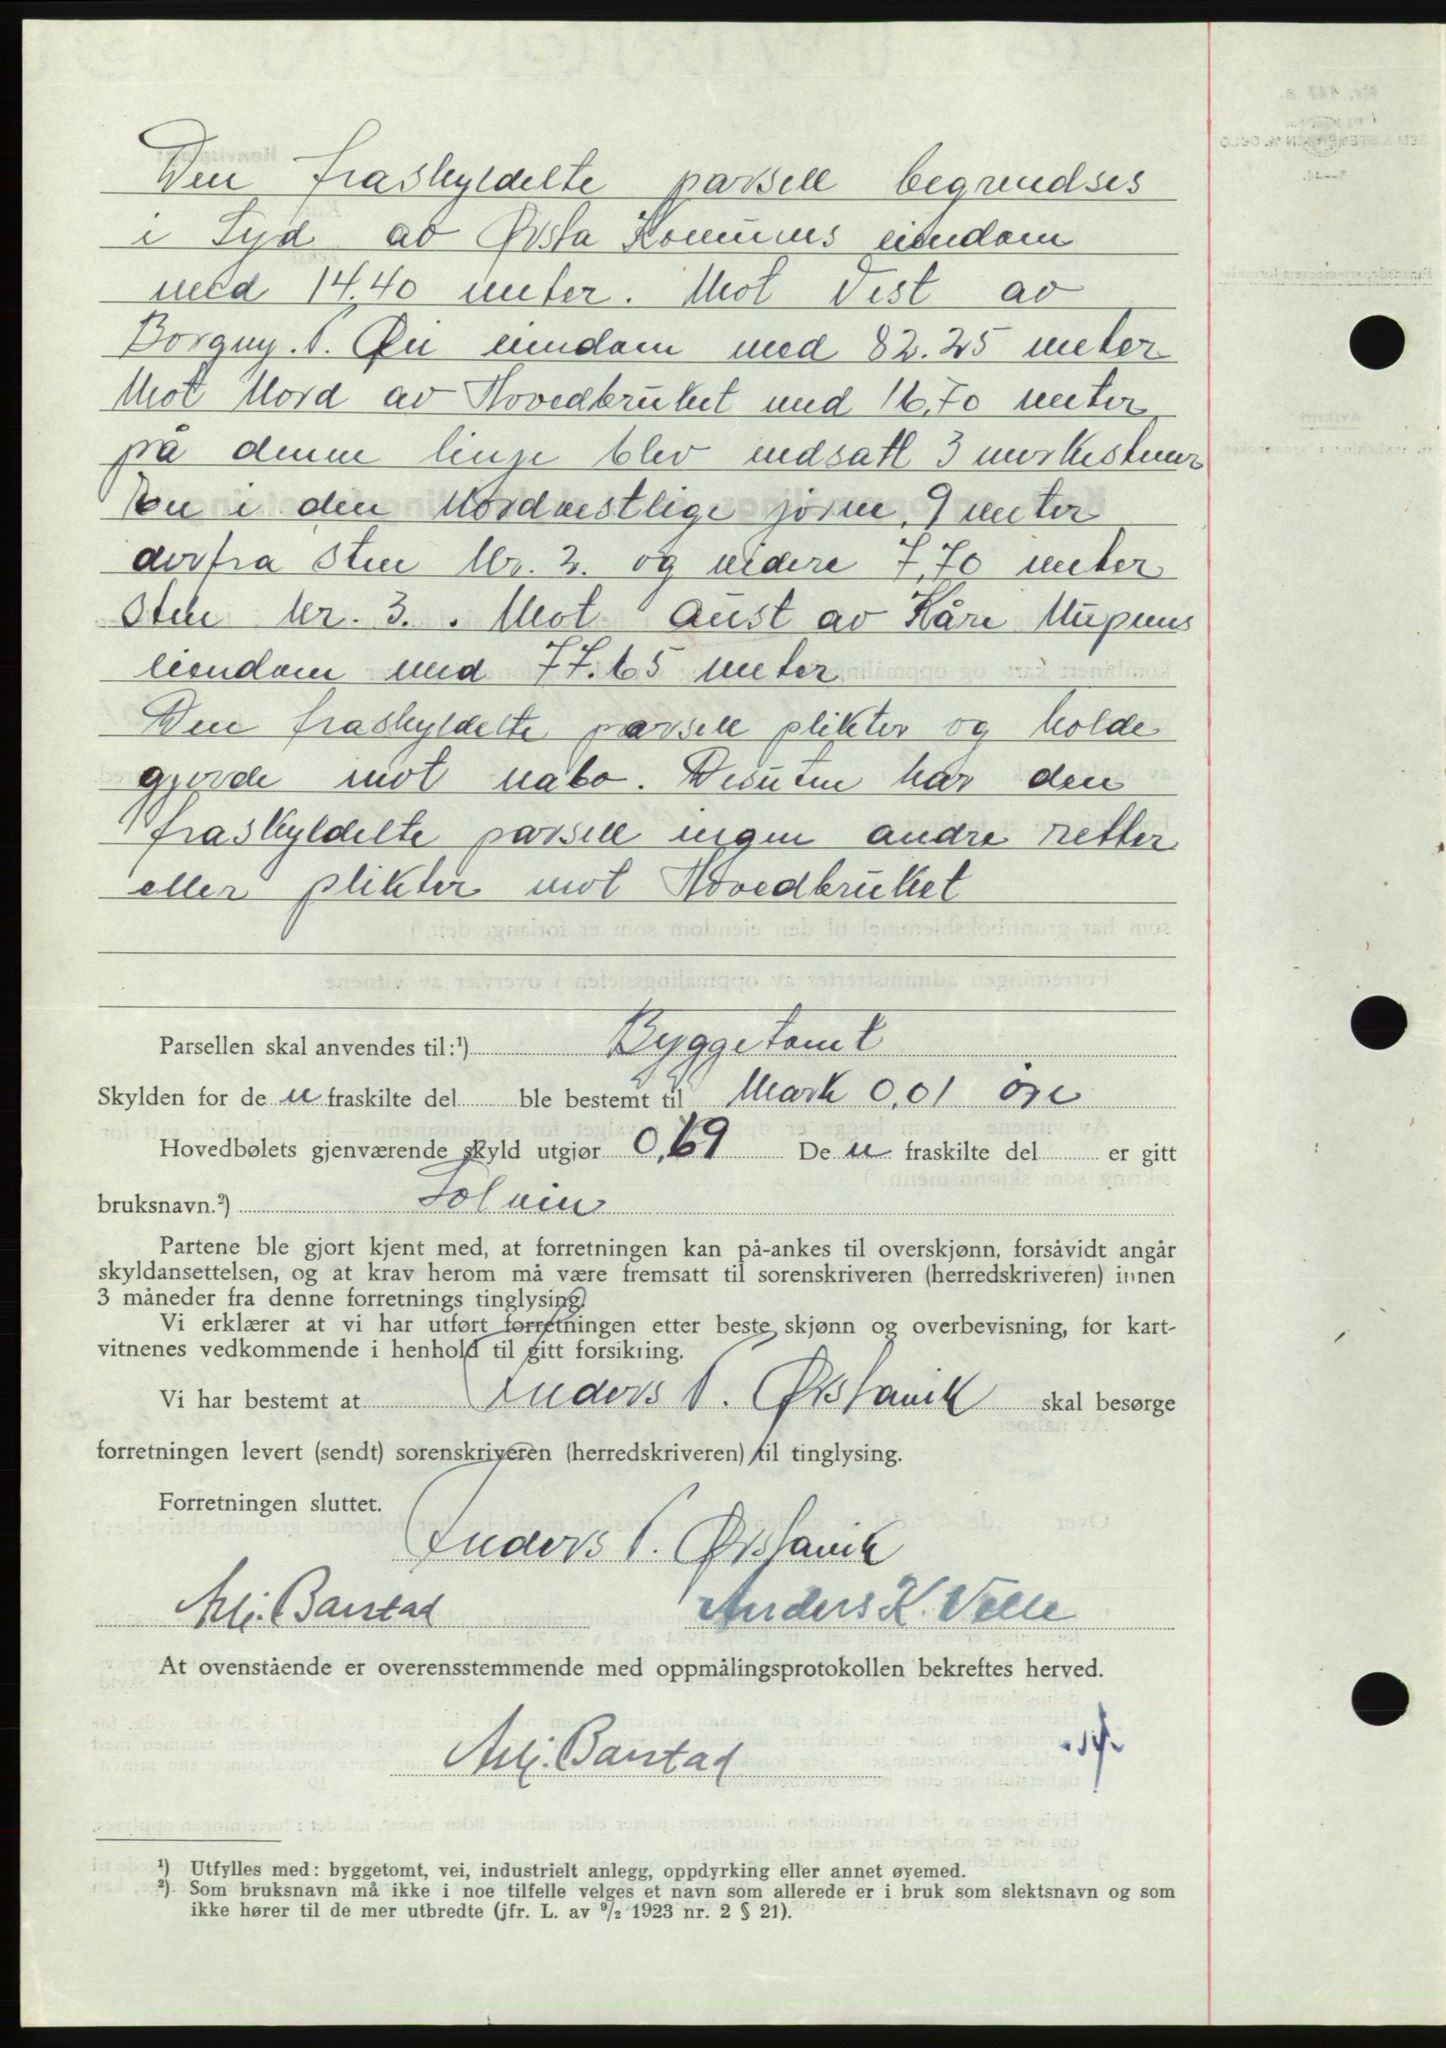 Den fraskyldelte parsell begrendses
i Syd av Ørsta Kommuns eiendom
med 14,40 meter. Mot Vest av
Borgny. P. Øii eiendom med 82.25 meter
Mot Nord av Hovedbruket med 16,70 meter
på denne linje blev nedsatt 3 merkestener
En i den Nordvestlige jørne, 9 meter
derfra sten Nr. 2. og videre 7,70 meter
sten Nr. 3. . Mot Aust av Kåre
eiendom med 77.65 meter
Den fraskyldelte parsell plikter og holde
gjerde mot nabo. Desuten har den
fraskyldelte parsell ingen andre retter
eller plikter mot Hovedbruket
Parsellen skal anvendes til:¹) Byggetomt
Skylden for de n fraskilte del ble bestemt til Mark 0,01 øre
Hovedbølets gjenværende skyld utgjør 0,69 De n fraskilte del er gitt
bruksnavn.²) Solvin
Partene ble gjort kjent med, at forretningen kan på-ankes til overskjønn, forsåvidt angår
skyldansettelsen, og at krav herom må være fremsatt til sorenskriveren (herredskriveren) innen
3 måneder fra denne forretnings tinglysing.
Vi erklærer at vi har utført forretningen etter beste skjønn og overbevisning, for kart-
vitnenes vedkommende i henhold til gitt forsikring.
Vi har bestemt at Anders P. Ørstavik skal besørge
forretningen levert (sendt) sorenskriveren (herredskriveren) til tinglysing.
Forretningen sluttet.
Anders P. Ørstavik
Barstad Anders K. Velle
At ovenstående er overensstemmende med oppmålingsprotokollen bekreftes herved.
Barstad
¹) Utfylles med: byggetomt, vei, industrielt anlegg, oppdyrking eller annet øyemed.
²) Som bruksnavn må ikke i noe tilfelle velges et navn som allerede er i bruk som slektsnavn og som
ikke hører til de mer utbredte (jfr. L. av ⁹/₂ 1923 nr. 2 § 21).